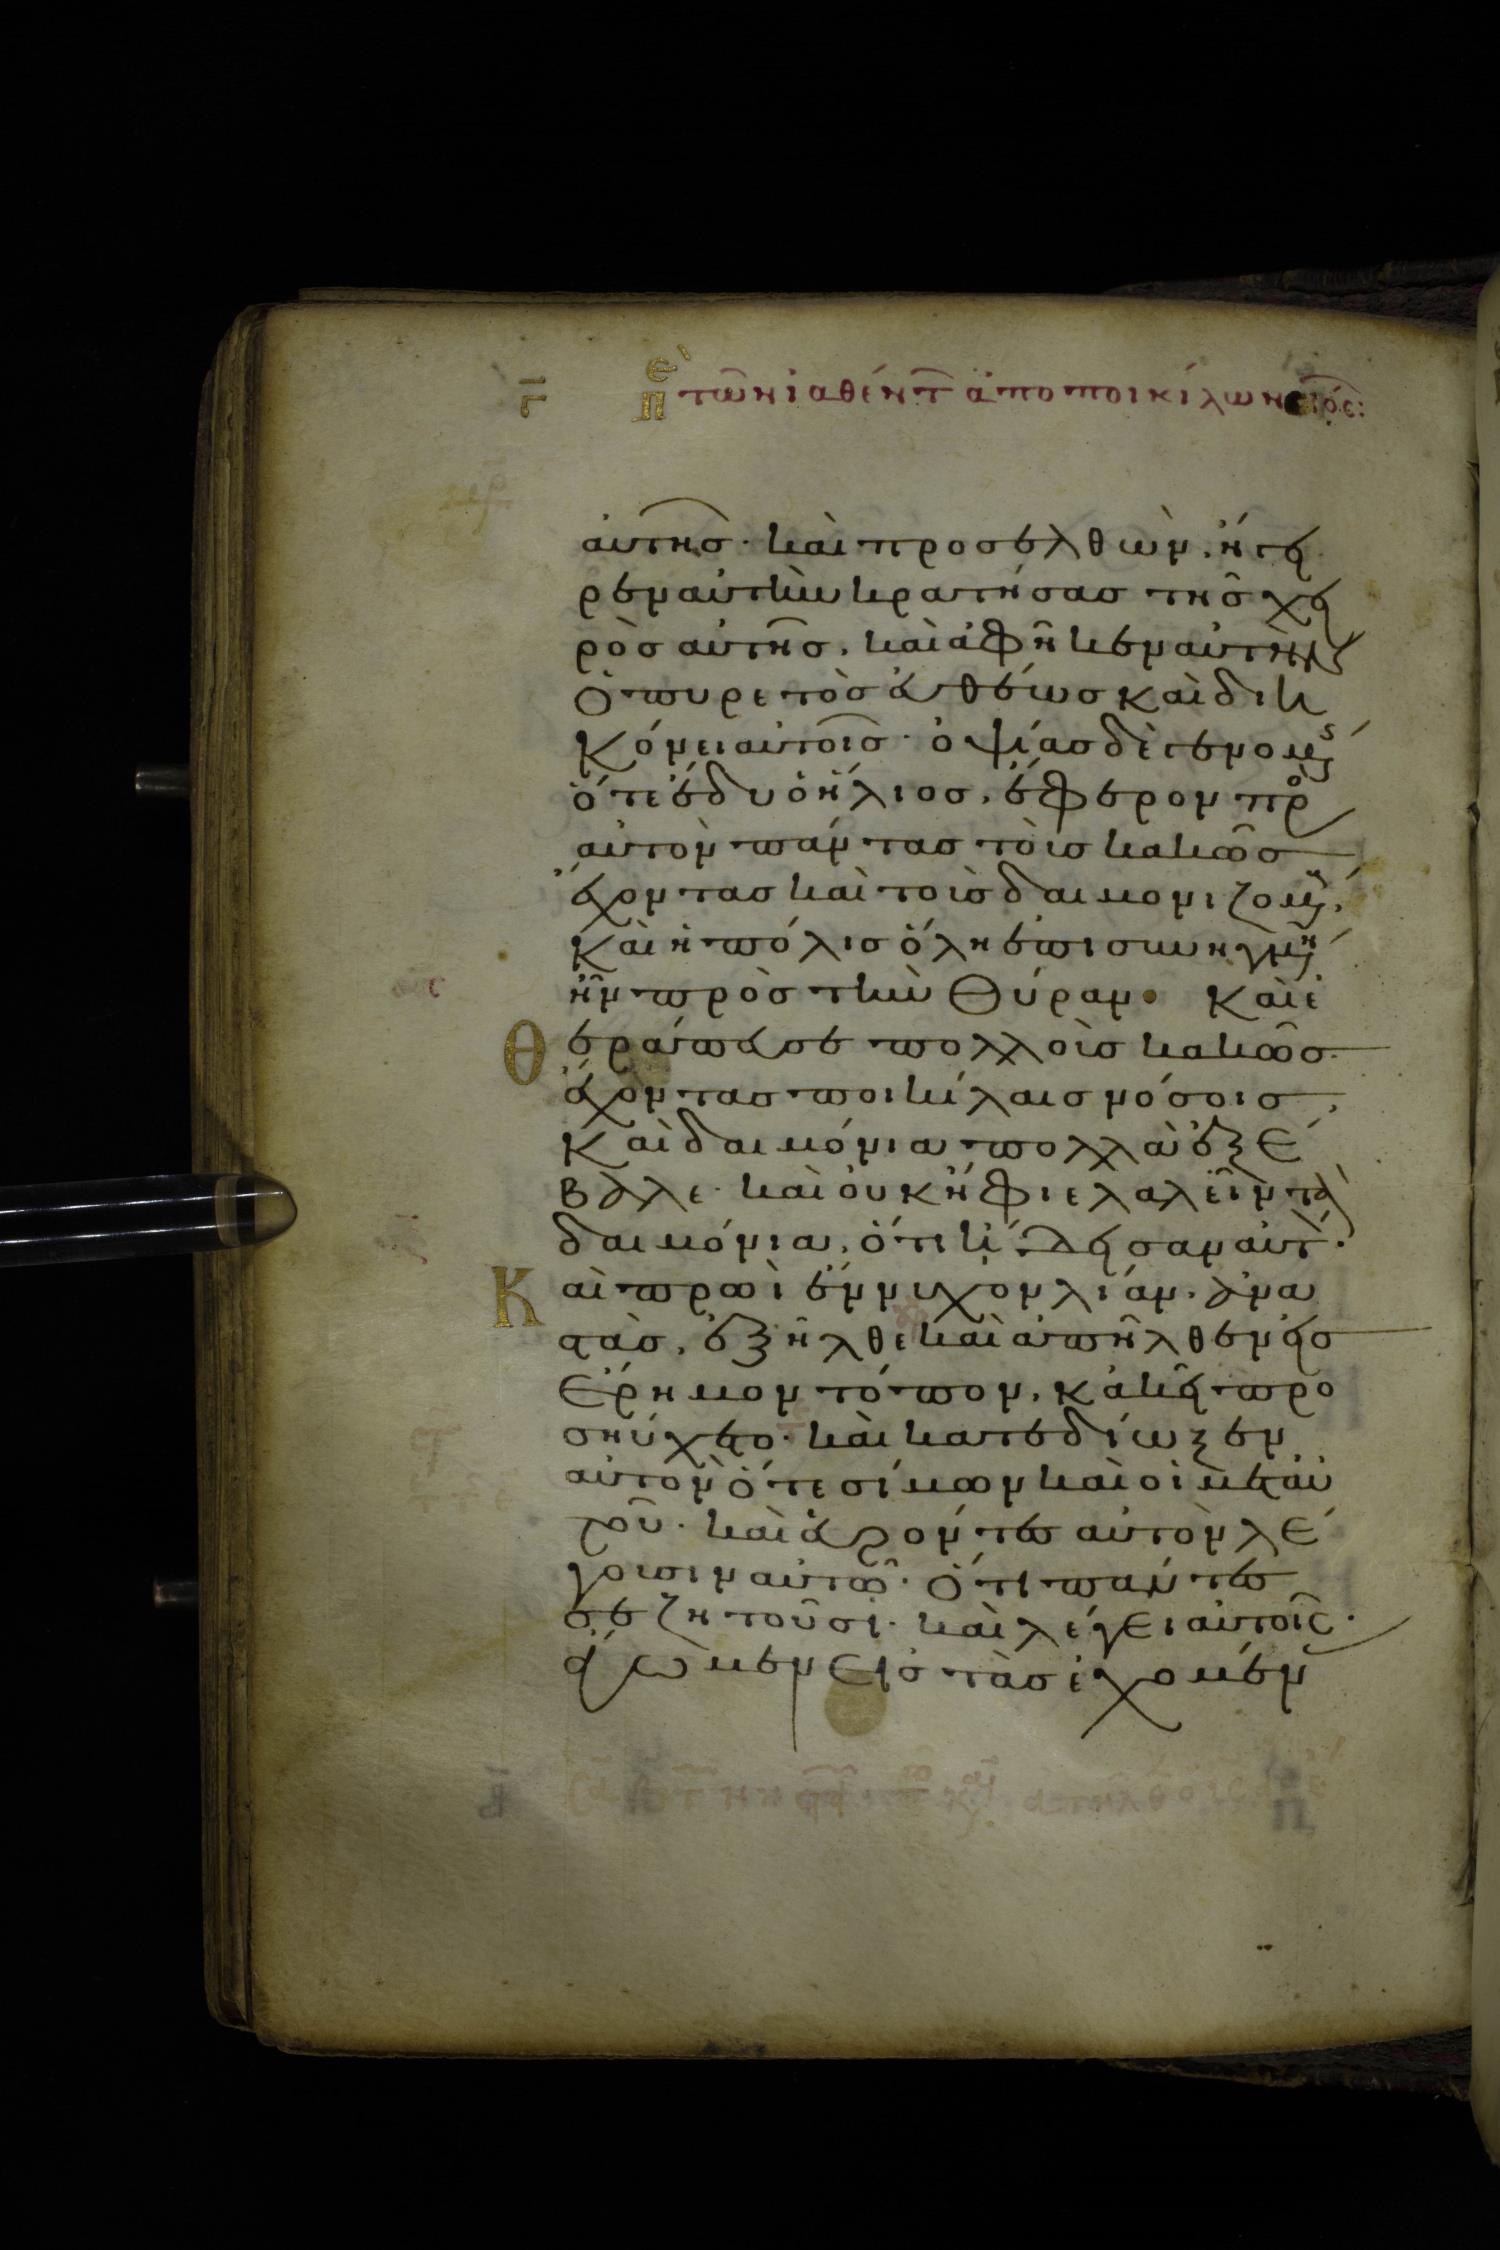 Γ Πε τῶν ἰαθέντ ἀπὸ ποικίλων
αὐτῆσ· καὶ προσελθὼν, ἤγει
ρεν αὐτὴν κρατήσασ τῆσ χει
ρὸσ αὐτῆσ, καὶ ἀφῆκεν αὐτὴν
ὁ πυρετὸσ εὐθέωσ καὶ διη
κόνει αὐτοῖσ· ὀψίασ δὲ γενομ
ὅτε ἔδυ ὁ ἥλιοσ, ἔφερον πρ
αὐτὸν πάντασ τοὺσ κακῶσ
ἔχοντασ καὶ τοὺσ δαιμονιζομ,
καὶ ἡ πόλισ ὅλη ἐπισυνηγμ
ἦν πρὸσ τὴν θύραν· Καὶ ἐ
θεράπευσε πολλοὺσ κακῶσ
ἔχοντασ ποικίλαισ νόσοισ,
καὶ δαιμόνια πολλὰ ἐξέ
βαλε· καὶ οὐκ ἤφιε λαλεῖν τὰ
δαιμόνια, ὅτι ᾔδεισαν αὐτ·
Καὶ πρωὶ ἔννυχον λίαν, ἀνα
στὰσ, ἐξῆλθε καὶ ἀπῆλθεν εἰσ
ἔρημον τόπον, κἀκεῖ προ
σηύχετο· καὶ κατεδίωξεν
αὐτὸν ὅτε σίμων καὶ οἱ μετ αὐ
τοῦ· καὶ εὑρόντεσ αὐτὸν λέ
γουσιν αὐτῶ· ὅτι πάντεσ
σε ζητοῦσι· καὶ λέγει αὐτοῖς·
ἄγωμεν εἰσ τὰσ ἐχομέν